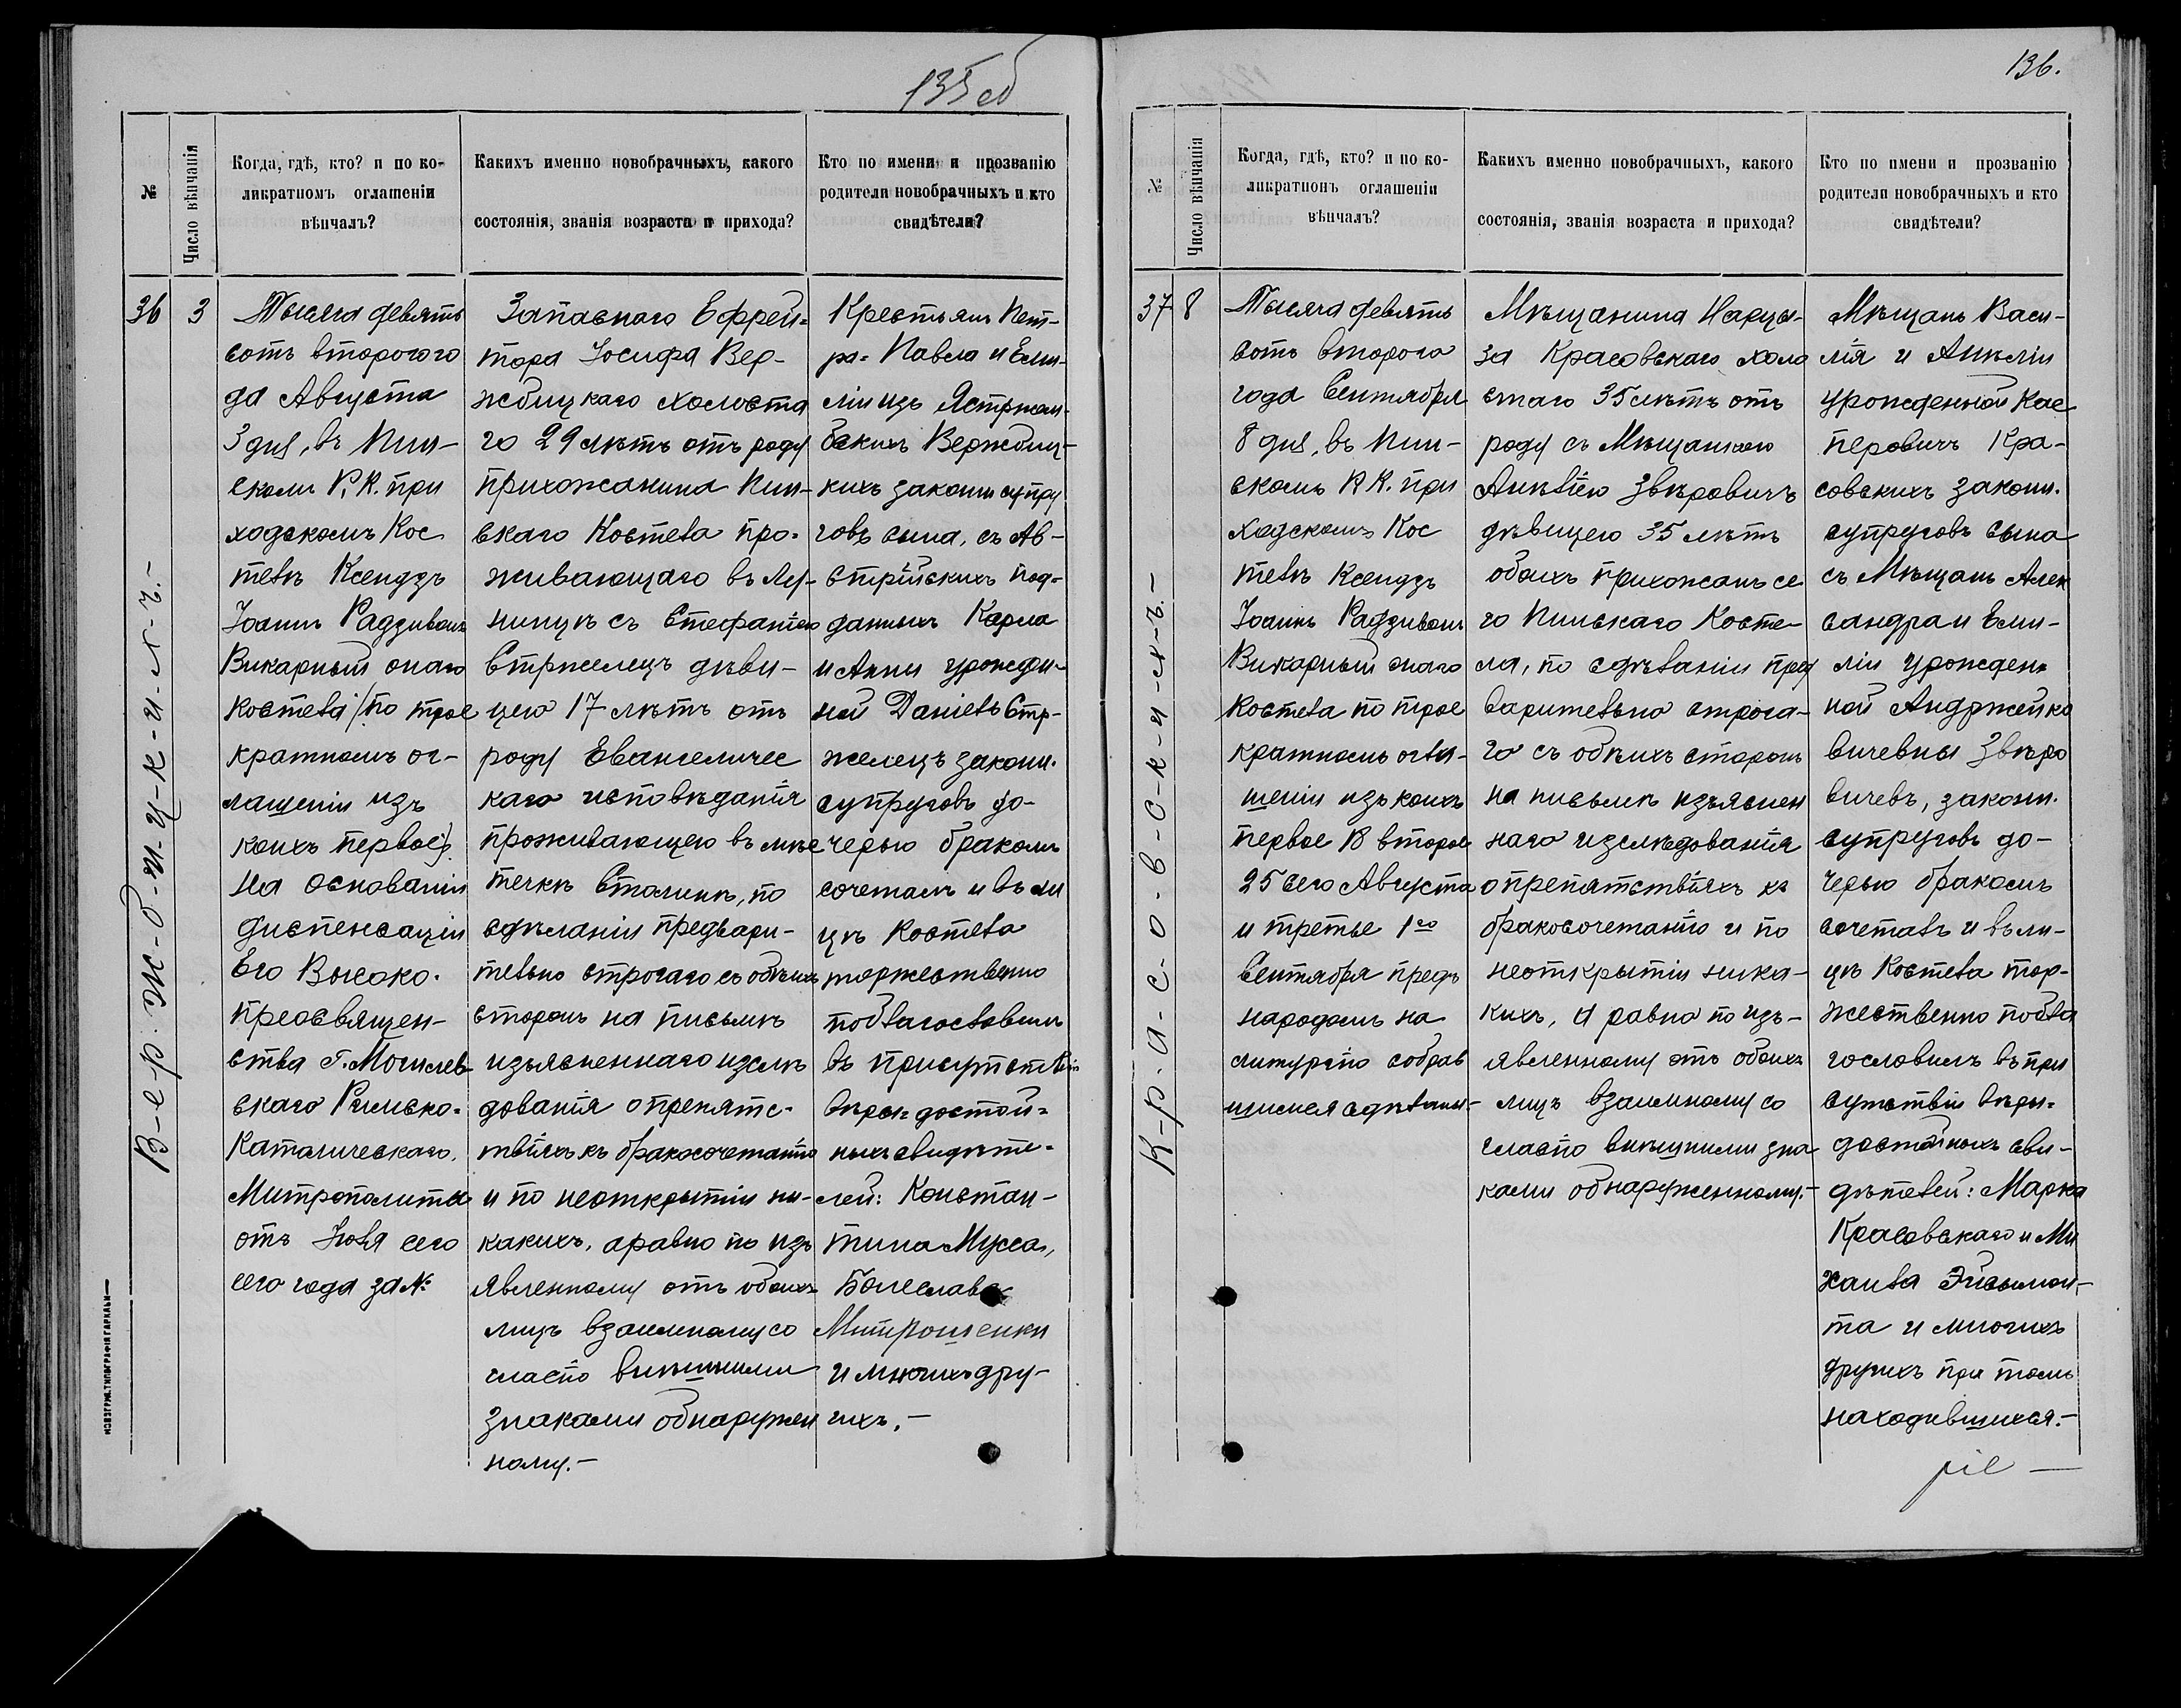 135 об
№
Число вѣнчанія
Когда, гдѣ, кто? и по ко-
ликратномъ оглашеніи
вѣнчалъ?
Какихъ именно новобрачныхъ, какого
состоянія, званія возраста и прихода?
Кто по имени и прозванію
родители новобрачныхъ и кто
свидѣтели?
36
3
В-е-р-ж-б-и-ц-к-и-л-ъ.-
Тысяча девять
сотъ второгого
да Августа
3 дня, въ Пин-
скомъ Р. К. при
ходскомъ Кос
телѣ Ксендзъ
Іоаннъ Радзивонъ
Викарный онаго
Костела (по трое
кратномъ ог-
лашеніи изъ
коихъ первое)
на основаніи
диспенсаціи
Его Высоко-
преосвящен-
ства Г. Могилев
скаго Римско-
Католическаго
Митрополита
отъ Іюля сего
сего года за №
Запаснаго Ефрей-
тора Іосифа Вер-
жбицкаго холоста
го 29 лѣтъ отъ роду
прихожанина Пин-
скаго Костела про-
живающаго въ Лу-
нинцѣ съ Стефаніею
Стржелецъ дѣви-
цею 17 лѣтъ отъ
роду Евангеличес
каго исповѣданія
проживающею въ мѣс
течкѣ Столинѣ, по
сдѣланіи предвари-
тельно строгаго съ обѣихъ
сторонъ на письмѣ
изъясненнаго изслѣ
дованія о препятс-
твіяхъ къ бракосочетанію
и по неоткрытіи ни-
какихъ, а равно по изъ
явленному отъ обоихъ
лицъ взаимному со
гласію внѣшними
знаками обнаружен
ному.-
Крестьянъ
Павла и Еми-
ліи изъ Ястржем-
бскихъ Вержбиц-
кихъ законн. супру
говъ сына, съ Ав-
стрійскихъ под-
данныхъ Карла
и Анны урожден-
ной Daniel Стр-
желецъ законн.
супруговъ до-
черью бракомъ
сочеталъ и въ ли
цѣ Костела
торжественно
поблагословилъ
въ присутствіи
вѣры-достой-
ныхъ свидѣте-
лей: Констан-
тина Мусса,
Болеслава
Митрошенки
и многихъ дру-
гихъ.-
НОВОГРУД. ТИПОГРАФІЯ ГАРКАВИ
136.
№
Число вѣнчанія
Когда, гдѣ, кто? и по ко-
ликратномъ оглашеніи
вѣнчалъ?
Какихъ именно новобрачныхъ, какого
состоянія, званія возраста и прихода?
Кто по имени и прозванію
родители новобрачныхъ и кто
свидѣтели?
37
8
К-р-а-с-о-в-с-к-и-л-ъ.-
Тысяча девять
сотъ второго
года Сентября
8 дня, въ Пин-
скомъ Р. К. при
ходскомъ Кос
телѣ Ксендзъ
Іоаннъ Радзивонъ
Викарный онаго
Костела по трое
кратномъ огла-
шеніи изъ коихъ
первое 18 второе
25 сего Августа
и третье 1го
Сентября предъ
народомъ на
литургію собрав
шимся сдѣланы-
Мѣщанина Нарци-
за Красовскаго холо
стаго 35 лѣтъ отъ
роду съ Мѣщанкою
Анѣлiею Звѣровичъ
дѣвицею 35 лѣтъ
обоихъ прихожанъ се
го Пинскаго Косте-
ла, по сдѣланіи пред
варительно строга-
го съ обѣихъ сторонъ
на письмѣ изъяснен
наго изслѣдованія
о препятствіяхъ къ
бракосочетанію и по
неоткрытіи ника-
кихъ, а равно по изъ-
явленному отъ обоихъ
лицъ взаимному со
гласію внѣшними зна
ками обнаруженному.-
Мѣщанъ Васи-
лія и Анѣліи
урожденной Кас
перовичъ Кра-
совскихъ законн.
супруговъ сына
съ Мѣщанъ Алек
сандра и Еми-
ліи урожден-
ной Анджейко
вичевны Звѣро
вичевъ, законн.
супруговъ до-
черью бракомъ
сочеталъ и въ ли-
цѣ Костела тор-
жественно побла
гословилъ въ при
сутствіи вѣры-
достойныхъ сви-
дѣтелей: Марка
Красовскаго и Ми
хаила Эйсымон-
та и многихъ
другихъ при томъ
находившихся.-